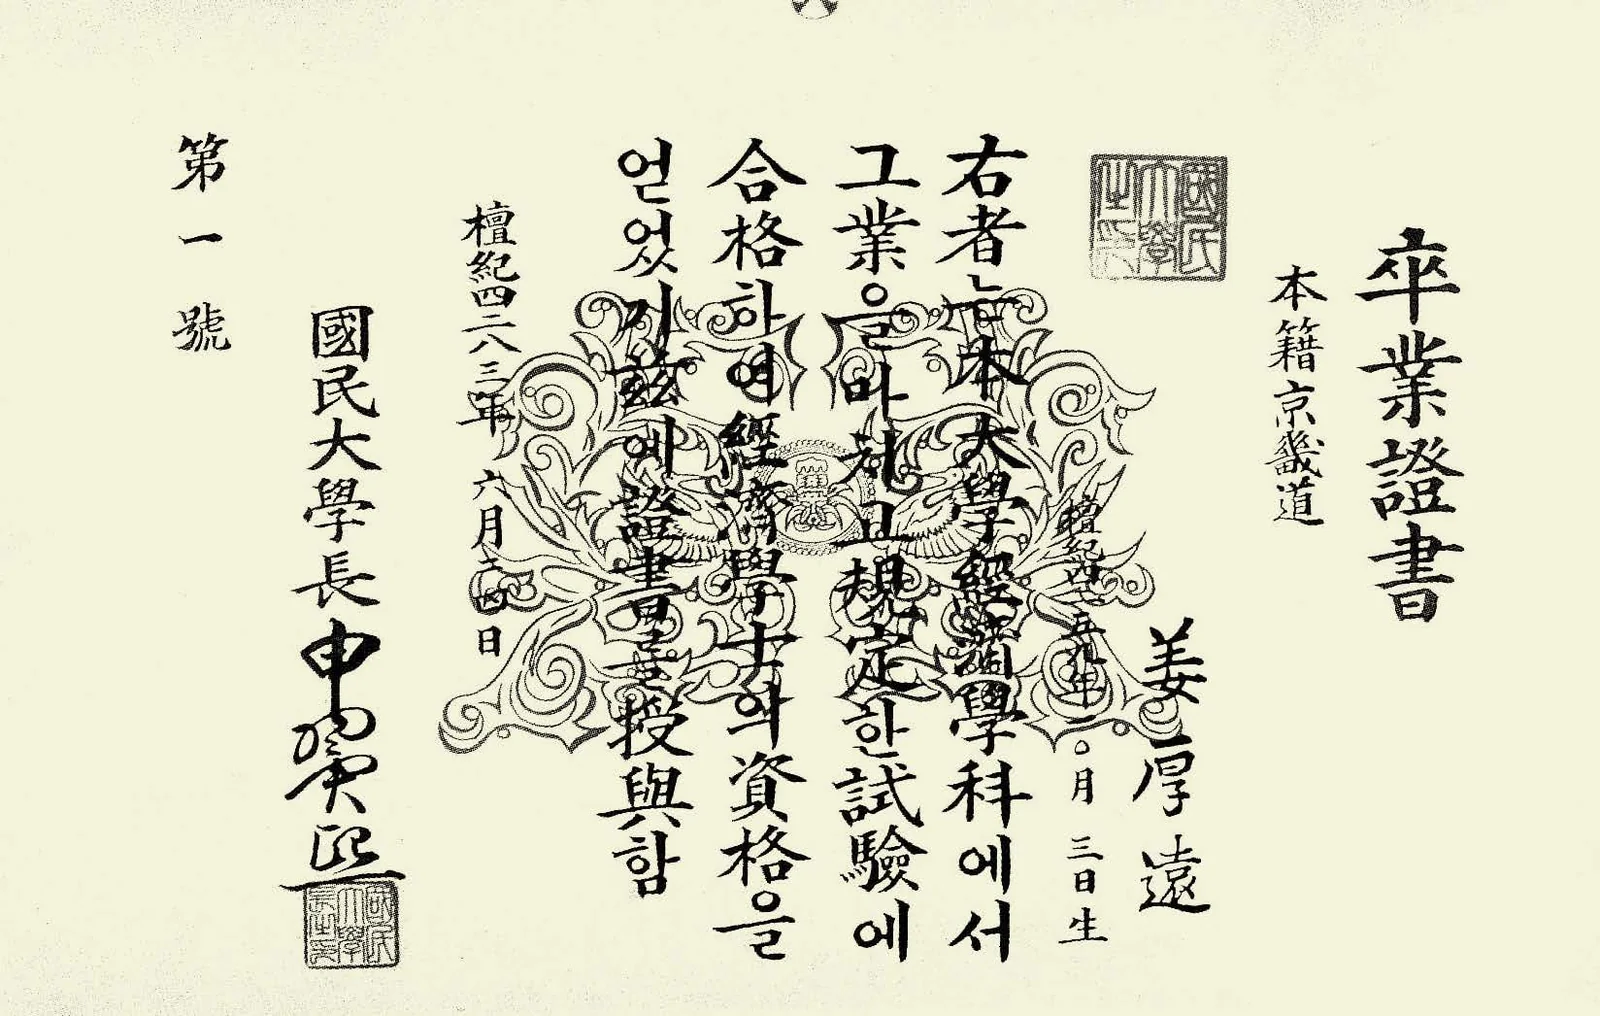 卒業證書
本籍京畿道
姜厚遠
檀紀四二五九年一〇月三日生
國民大學之印
右者는本大學經濟學科에서
그業을마치고規定한試驗에
合格하여經濟學士의資格을
얻었기玆에證書를授與함
檀紀四二八三年 六月 日
國民大學長 申翼熙
國民大學長之印
第一號